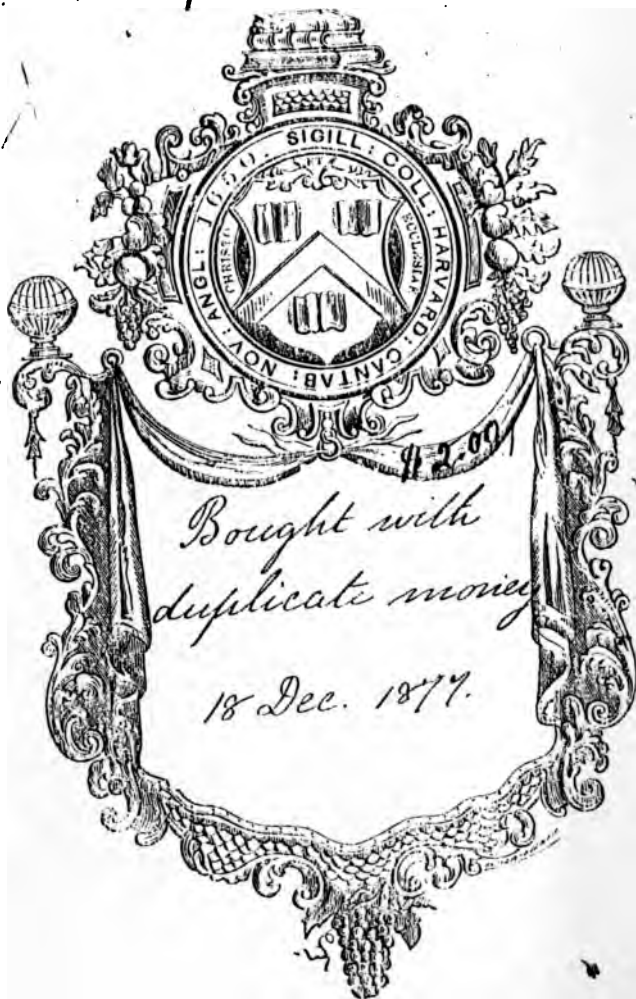 SIGILL: COLL: HARVARD: CANTAB: NOV: ANGL: 1650.
CHRISTO
ET
ECCLESIAE
Bought with
duplicate money
18 Dec. 1877.